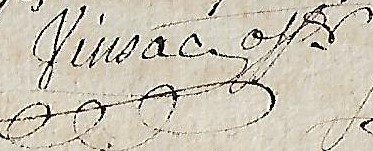 Vinsac offr